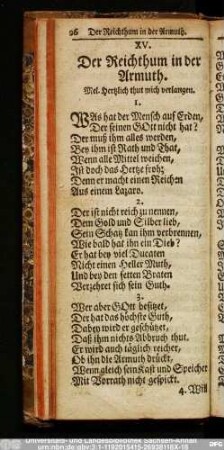 96 Der Reichthum in der Armuth.
XV.
Der Reichthum in der
Armuth.
Mel. Hertzlich thut mich verlangen.
1.
WAs hat der Mensch auf Erden,
Der seinen GOtt nicht hat?
Der muß ihm alles werden,
Bey ihm ist Rath und That,
Wenn alle Mittel weichen,
Ist doch das Hertze froh;
Denn er macht einen Reichen
Aus einem Lazaro.
2.
Der ist nicht reich zu nennen,
Dem Gold und Silber lieb,
Sein Schatz kan ihm verbrennen,
Wie bald hat ihn ein Dieb?
Er hat bey viel Ducaten
Nicht einen Heller Muth,
Und bey den fetten Braten
Verzehret sich sein Guth.
3.
Wer aber GOtt besitzet,
Der hat das höchste Guth,
Dabey wird er geschützet,
Daß ihm nichts Abbruch thut.
Er wird auch täglich reicher,
Ob ihn die Armuth drückt,
Wenn gleich sein Kast und Speicher
Mit Vorrath nicht gespickt.
4. Will
Universitäts- und Landesbibliothek Sachsen-Anhalt
urn:nbn:de:gbv:3:1-1192015415-26938116X-18
DFG